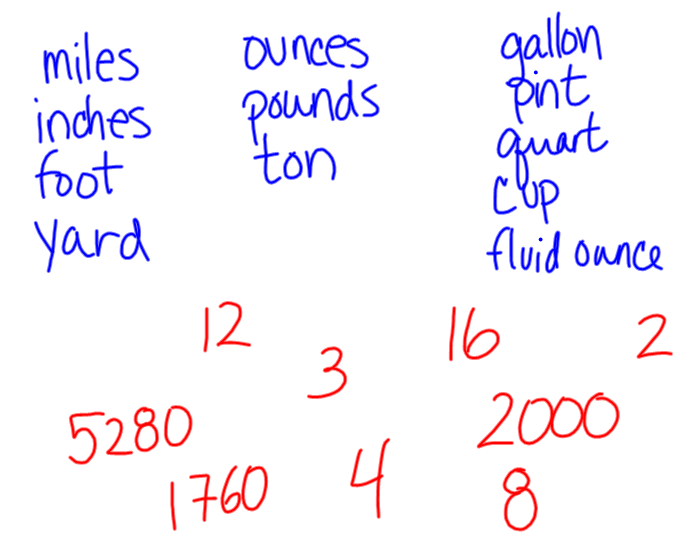 miles
inches
foot
yard
ounces
pounds
ton
gallon
pint
quart
cup
fluid ounce
12
3
16
2
5280
2000
1760
4
8